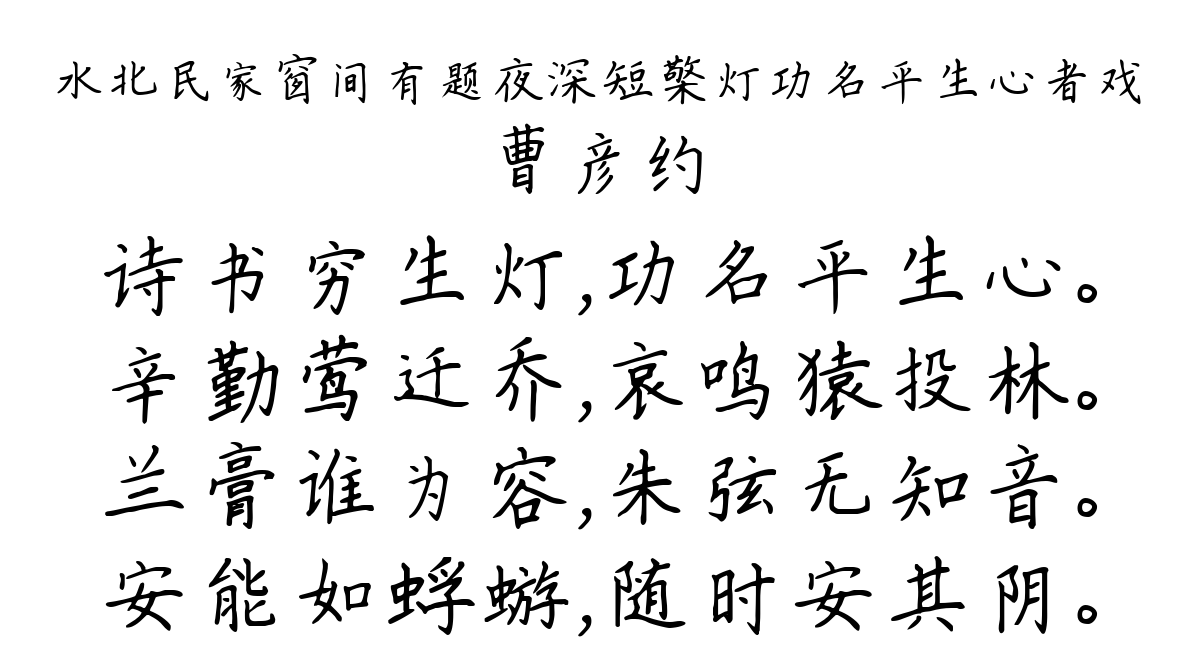 水北民家窗间有题夜深短檠灯功名平生心者戏
曹彦约
诗书穷生灯,功名平生心。
辛勤莺迁乔,哀鸣猿投林。
兰膏谁为容,朱弦无知音。
安能如蜉蝣,随时安其阴。